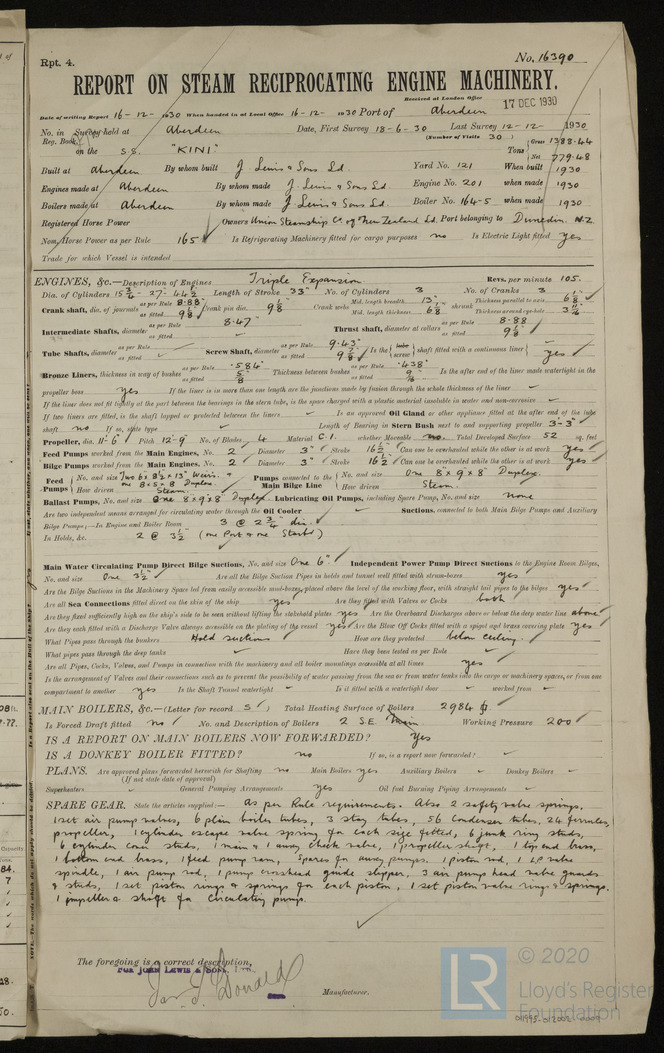 Rpt. 4.
No. 16390
REPORT ON STEAM RECIPROCATING ENGINE MACHINERY.
Received at London Office 17 DEC 1930
Date of writing Report 16-12-1930 When handed in at Local Office 16-12-1930 Port of Aberdeen
No. in Survey held at Aberdeen Date, First Survey 18-6-30 Last Survey 12-12-1930
Reg. Book. (Number of Visits 30)
on the S.S. "KINI" Tons Gross 1388.44 Net 779.48
Built at Aberdeen By whom built J. Lewis & Sons Ld. Yard No. 121 When built 1930
Engines made at Aberdeen By whom made J. Lewis & Sons Ld. Engine No. 201 when made 1930
Boilers made at Aberdeen By whom made J. Lewis & Sons Ld. Boiler No. 164-5 when made 1930
Registered Horse Power Owners Union Steamship Co of New Zealand Ld. Port belonging to Dunedin. N.Z
Nom. Horse Power as per Rule 165 Is Refrigerating Machinery fitted for cargo purposes no Is Electric Light fitted yes
Trade for which Vessel is intended
ENGINES, &c.—Description of Engines Triple Expansion Revs. per minute 105.
Dia. of Cylinders 15 3/4 - 27 - 44 1/2 Length of Stroke 33" No. of Cylinders 3 No. of Cranks 3
Crank shaft, dia. of journals as per Rule 8.88 as fitted 9 1/8 Crank pin dia. 9 1/8 Crank webs Mid. length breadth 13" Mid. length thickness 6 1/8 shrunk Thickness parallel to axis 6 1/8 Thickness around eyehole
Intermediate Shafts, diameter as per Rule 8.47 as fitted Thrust shaft, diameter at collars as per Rule 8.88 as fitted 9 1/8
Tube Shafts, diameter as per Rule as fitted Screw Shaft, diameter as per Rule 9.43 as fitted 9 7/8 Is the tube screw shaft fitted with a continuous liner yes
Bronze Liners, thickness in way of bushes as per Rule .584 as fitted 5/8 Thickness between bushes as per Rule .438 as fitted 9/16 Is the after end of the liner made watertight in the
propeller boss yes If the liner is in more than one length are the junctions made by fusion through the whole thickness of the liner
If the liner does not fit tightly at the part between the bearings in the stern tube, is the space charged with a plastic material insoluble in water and non-corrosive
If two liners are fitted, is the shaft lapped or protected between the liners Is an approved Oil Gland or other appliance fitted at the after end of the tube
shaft no If so, state type Length of Bearing in Stern Bush next to and supporting propeller 3'-3"
Propeller, dia. 11'-6" Pitch 12'-9" No. of Blades 4 Material C.I. whether Moveable no. Total Developed Surface 52 sq. feet
Feed Pumps worked from the Main Engines, No. 2 Diameter 3" Stroke 16 1/2" Can one be overhauled while the other is at work yes
Bilge Pumps worked from the Main Engines, No. 2 Diameter 3" Stroke 16 1/2" Can one be overhauled while the other is at work yes
Feed Pumps No. and size Two 6"x8 1/2"x13" Weirs. & one 8"x5"x8" Duplex How driven Steam. Pumps connected to the Main Bilge Line No. and size One 8"x9"x8" Duplex. How driven Steam.
Ballast Pumps, No. and size One 8"x9"x8" Duplex. Lubricating Oil Pumps, including Spare Pump, No. and size none
Are two independent means arranged for circulating water through the Oil Cooler Suctions, connected to both Main Bilge Pumps and Auxiliary
Bilge Pumps;—In Engine and Boiler Room 3 @ 2 3/4" dia.
In Holds, &c. 2 @ 3 1/2" (one Port & one Starbd)
Main Water Circulating Pump Direct Bilge Suctions, No. and size One 6" Independent Power Pump Direct Suctions to the Engine Room Bilges,
No. and size One 3 1/2" Are all the Bilge Suction Pipes in holds and tunnel well fitted with strum-boxes yes
Are the Bilge Suctions in the Machinery Space led from easily accessible mud-boxes, placed above the level of the working floor, with straight tail pipes to the bilges yes
Are all Sea Connections fitted direct on the skin of the ship yes Are they fitted with Valves or Cocks both
Are they fixed sufficiently high on the ship's side to be seen without lifting the stokehold plates yes Are the Overboard Discharges above or below the deep water line above
Are they each fitted with a Discharge Valve always accessible on the plating of the vessel yes Are the Blow Off Cocks fitted with a spigot and brass covering plate yes
What Pipes pass through the bunkers Hold suctions How are they protected below ceiling.
What pipes pass through the deep tanks Have they been tested as per Rule
Are all Pipes, Cocks, Valves, and Pumps in connection with the machinery and all boiler mountings accessible at all times yes
Is the arrangement of Valves and their connections such as to prevent the possibility of water passing from the sea or from water tanks into the cargo or machinery spaces, or from one
compartment to another yes Is the Shaft Tunnel watertight Is it fitted with a watertight door worked from
MAIN BOILERS, &c.—(Letter for record S) Total Heating Surface of Boilers 2984
Is Forced Draft fitted no No. and Description of Boilers 2 S.E. Main. Working Pressure 200
IS A REPORT ON MAIN BOILERS NOW FORWARDED? Yes
IS A DONKEY BOILER FITTED? no If so, is a report now forwarded?
PLANS. Are approved plans forwarded herewith for Shafting no Main Boilers yes Auxiliary Boilers Donkey Boilers
(If not state date of approval)
Superheaters General Pumping Arrangements yes Oil fuel Burning Piping Arrangements
SPARE GEAR. State the articles supplied:— as per Rule requirements. Also 2 safety valve springs.
1 set air pump valves, 6 plain boiler tubes, 3 stay tubes, 56 condenser tubes, 24 ferrules,
propeller, 1 cylinder escape valve spring for each size fitted, 6 junk ring studs,
6 cylinder cover studs, 1 main & 1 auxy check valve, 1 propeller shaft, 1 top end brass,
1 bottom end brass, 1 feed pump ram, spares for auxy pumps. 1 piston rod, 1 LP valve
spindle, 1 air pump rod, 1 pump crosshead guide slipper, 3 air pump head valve guards
& studs, 1 set piston rings & springs for each piston, 1 set piston valve rings & springs.
1 impeller & shaft for circulating pump.
The foregoing is a correct description,
FOR JOHN LEWIS & SONS, LTD.
Manufacturer.
© 2020
LR
Lloyd's Register
Foundation